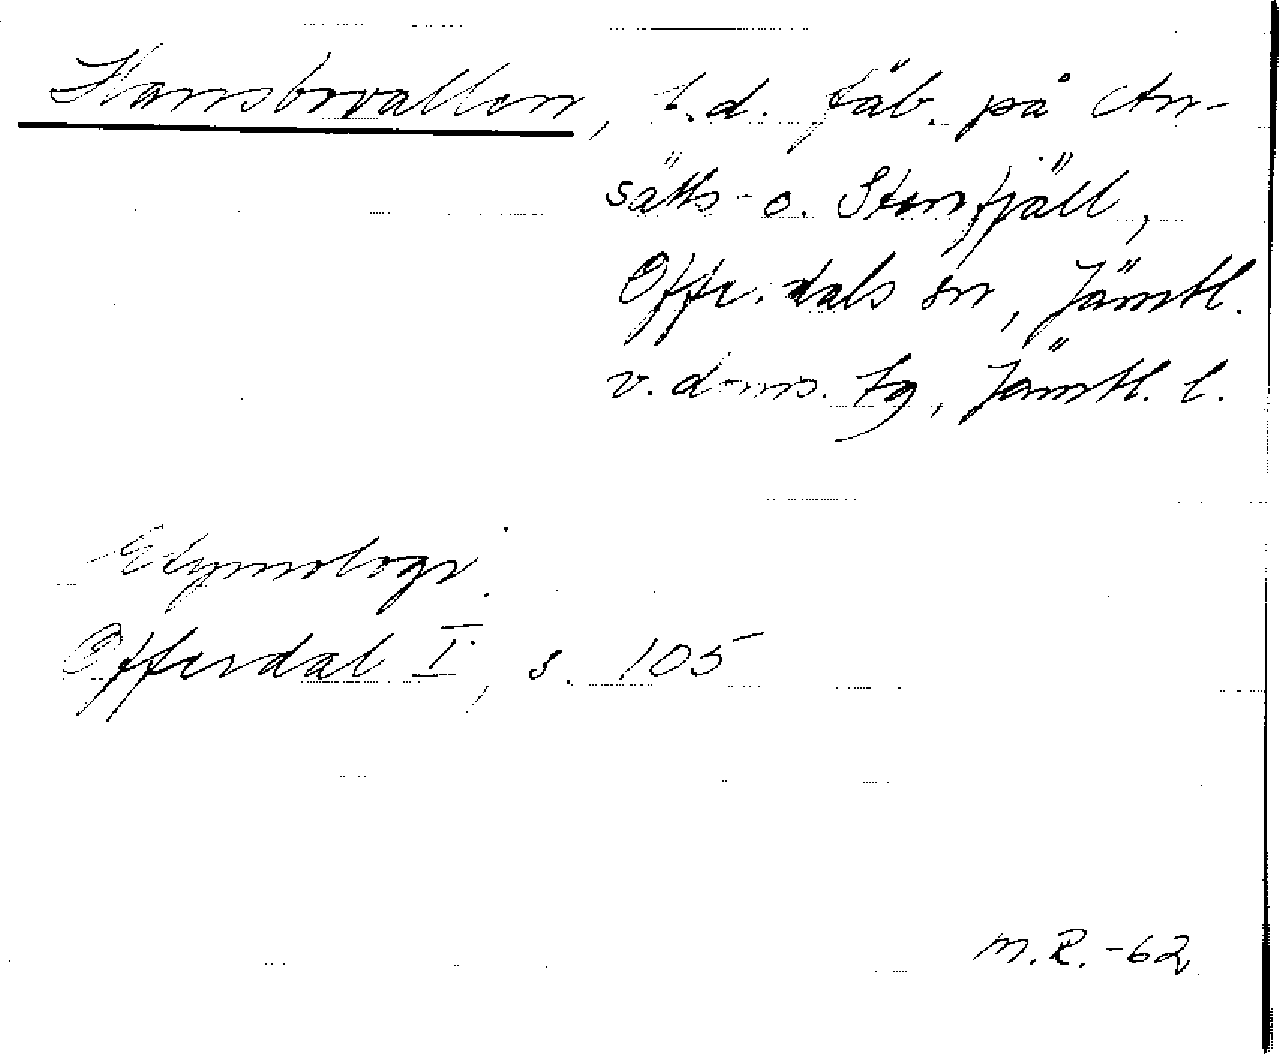 Hansbovallen, f.d. fäb. på An-
sätts- o. Storfjäll,
Offerdals sn, Jämtl.
v. doms. tg, Jämtl. l.
Etymologi.
Offerdal I, s. 105
M.R.-62